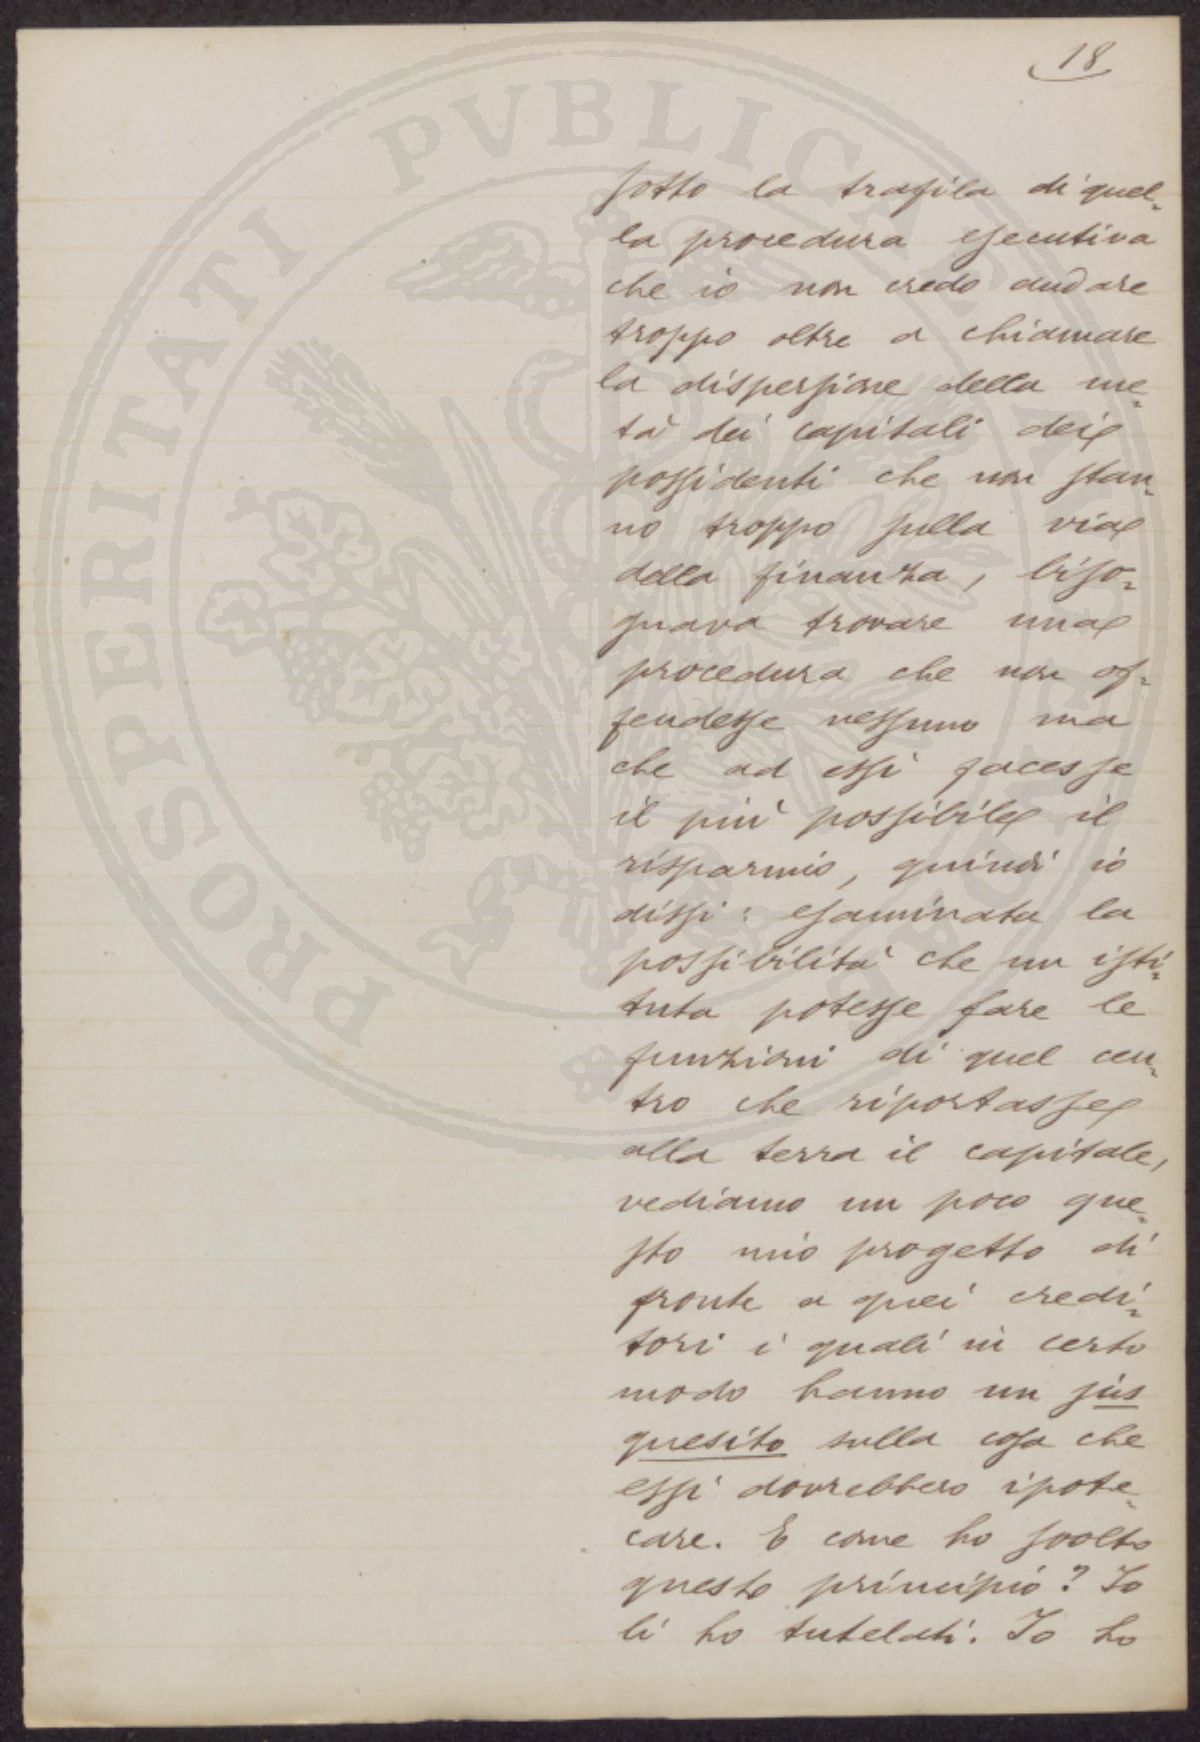 18
sotto la trafila di quel-
la procedura esecutiva
che io non credo andare
troppo oltre a chiamare
la dispersione della me-
tà dei capitali dei
possidenti che non stan-
no troppo sulla via
della finanza, biso-
gnava trovare una
procedura che non of-
fendesse nessuno ma
che ad essi facesse
il più possibile il
risparmio, quindi io
dissi: esaminata la
possibilità che un isti-
tuto potesse fare le
funzioni di quel cen-
tro che riportasse
alla terra il capitale,
vediamo un poco que-
sto mio progetto di
fronte a quei credi-
tori i quali in certo
modo hanno un jus
quesito sulla cosa che
essi dovrebbero ipote-
care. E come ho svolto
questo principio? Io
li ho tutelati. Io ho
PROSPERITATI PVBLICAE